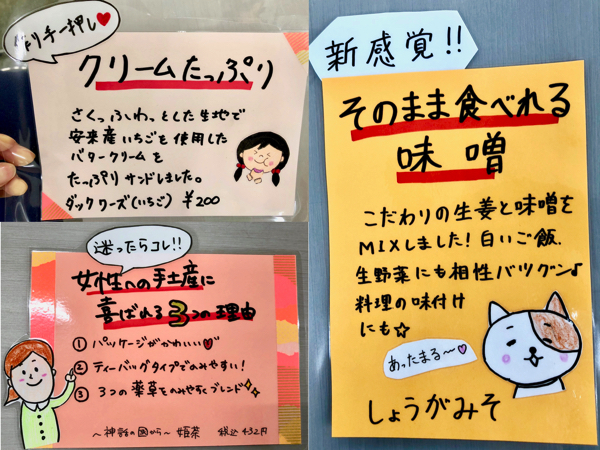 イチ押し♥
クリームたっぷり
さくっふわっとした生地で
安来産いちごを使用した
バタークリームを
たっぷりサンドしました。
ダックワーズ(いちご) ¥200
迷ったらコレ!!
女性への手土産に
喜ばれる3つの理由
① パッケージがかわいい♥
② ティーバッグタイプでのみやすい!
③ 3つの薬草をのみやすくブレンド
〜神話の国から〜 姫茶 税込432円
新感覚!!
そのまま食べれる
味噌
こだわりの生姜と味噌を
MIXしました!白いご飯、
生野菜にも相性バツグン♪
料理の味付け
にも☆
あったまる〜♡
しょうがみそ